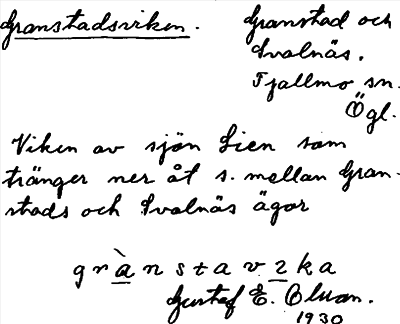 Granstadsviken.
Granstad och
Svalnäs.
Tjällmo sn.
Ögl.
Viken av sjön Lien som
tränger ner åt s. mellan Gran-
stads och Svalnäs ägor
gràn stav ka
Gustaf E.
1930